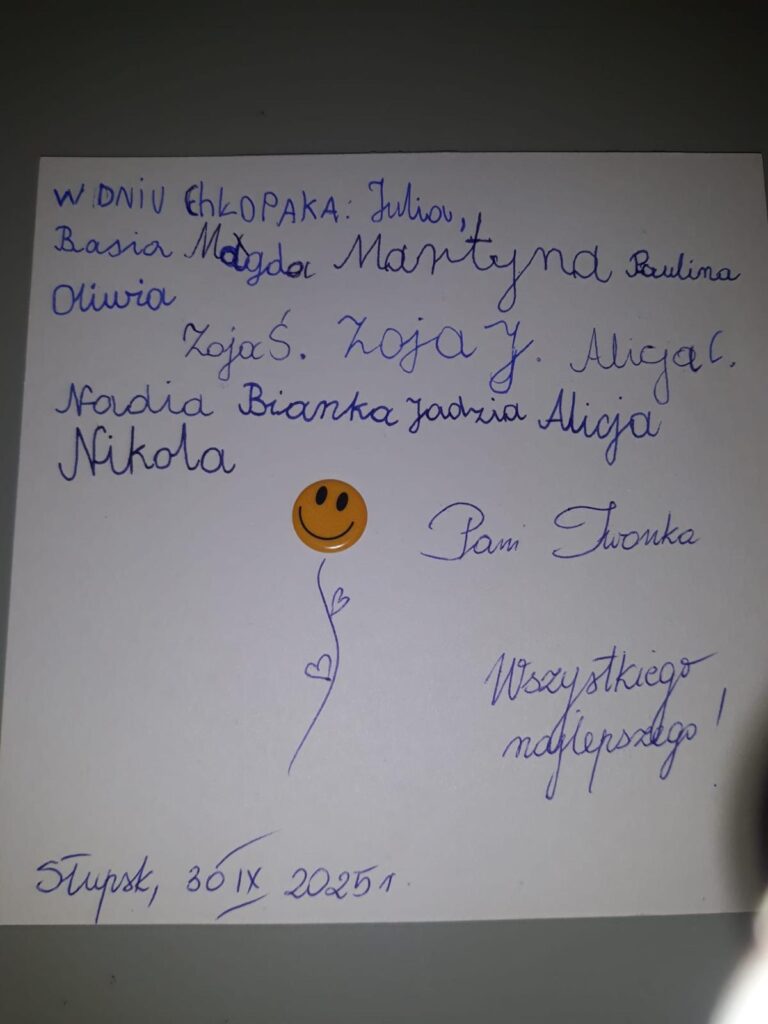 W DNIU CHŁOPAKA: Julia,
Basia Magda Martyna Paulina
Oliwia
Zoja Ś. Zoja J. Alicja C.
Nadia Bianka Jadzia Alicja
Nikola
Pani Iwonka
Wszystkiego
najlepszego!
Słupsk, 30 IX 2025r